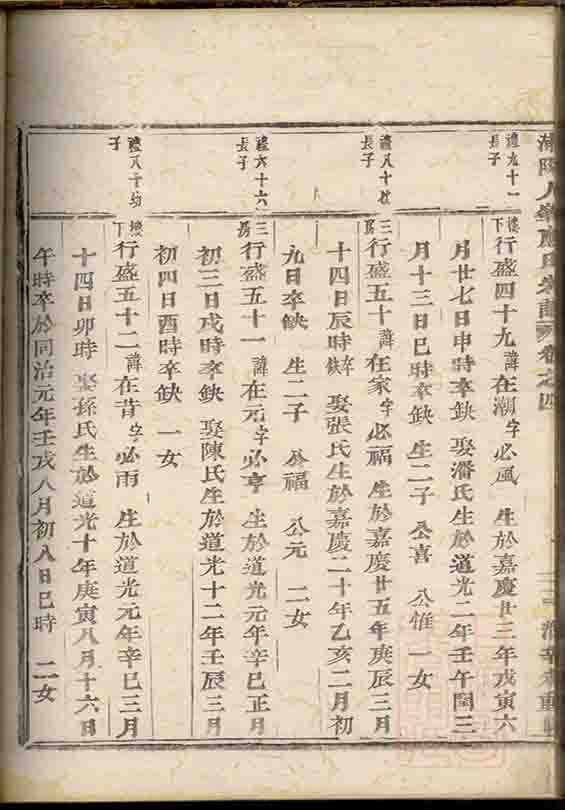 禮九十一
長子
樓下行盛四十九諱在潮字必風 生於嘉慶廿三年戊寅六
月廿七日申時卒缺 娶潘氏生於道光二年壬午閏三
月十三日巳時卒缺 生二子 公喜 公惟 一女
禮八十
長子
三房行盛五十諱在家字必福 生於嘉慶廿五年庚辰三月
十四日辰時卒缺 娶張氏生於嘉慶二十年乙亥二月初
九日卒缺 生二子 公福 公元 二女
禮六十六
長子
三房行盛五十一諱在元字必亨 生於道光元年辛巳正月
初三日戌時卒缺 娶陳氏生於道光十二年壬辰三月
初四日酉時卒缺 一女
禮八十幼
子
樓下行盛五十二諱在昔字必雨 生於道光元年辛巳三月
十四日卯時 娶孫氏生於道光十年庚寅八月十六日
午時卒於同治元年壬戌八月初八日巳時 二女